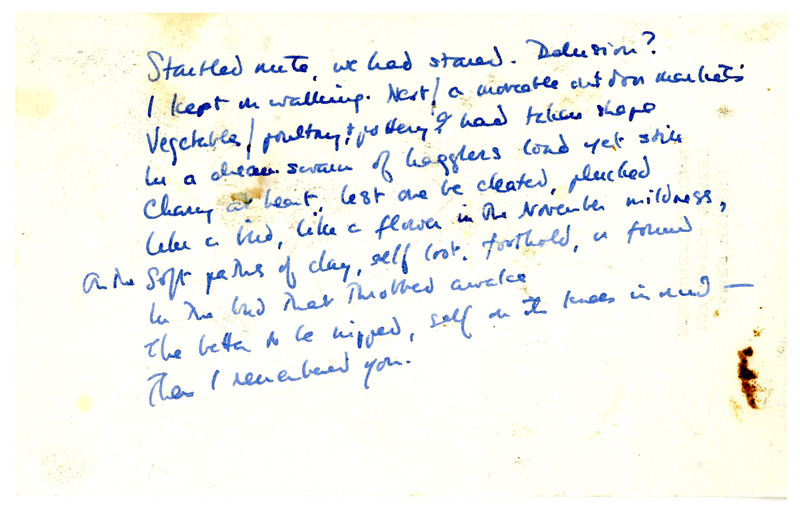 Startled mute, we had stared. Delusion?
I kept on walking. Next / a moveable outdoor market's
Vegetables / poultry, & pottery had taken shape
In a dream swarm of hagglers loud yet still
Chary at heart, lest one be cheated, plucked
Like a bird, like a flower in the November mildness,
On the Soft paths of clay, self lost. foothold, or found
In the bud that throbbed awake
The better to be nipped, self on its knees in mud —
Then I remembered you.